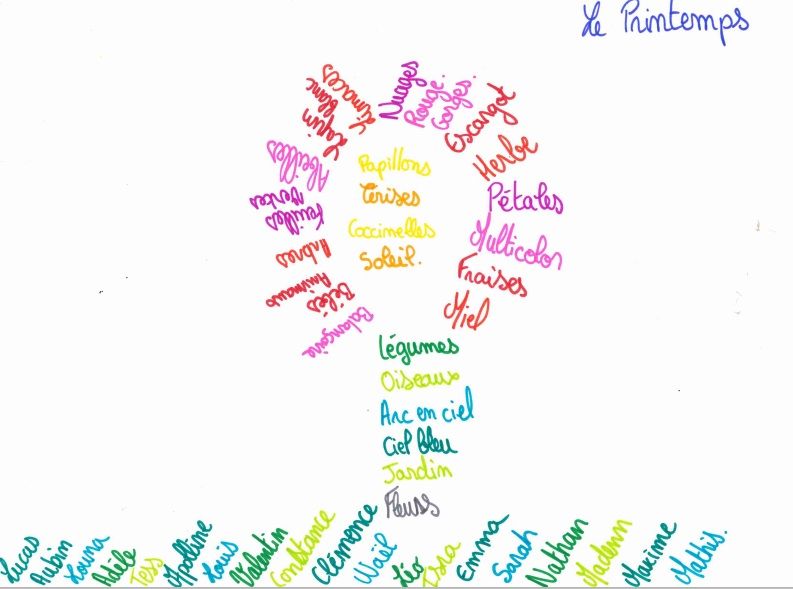 Le Printemps
Nuages
Rouge.
Gorges.
Escargot
Herbe
Pétales
Multicolor
Fraises
Miel
Limaces
Lapin
blanc
Abeilles
Feuilles
Vertes
Arbres
Bébés
Animaux
Balançoire
Papillons
Cerises
Coccinelles
Soleil.
Légumes
Oiseaux
Arc en ciel
Ciel bleu
Jardin
Fleurs
Lucas
Aubin
Louna
Adèle
Tess
Apolline
Louis
Valentin
Constance
Clémence
Waël
Léo
Issa
Emma
Sarah
Nathan
Maxime
Mathis.